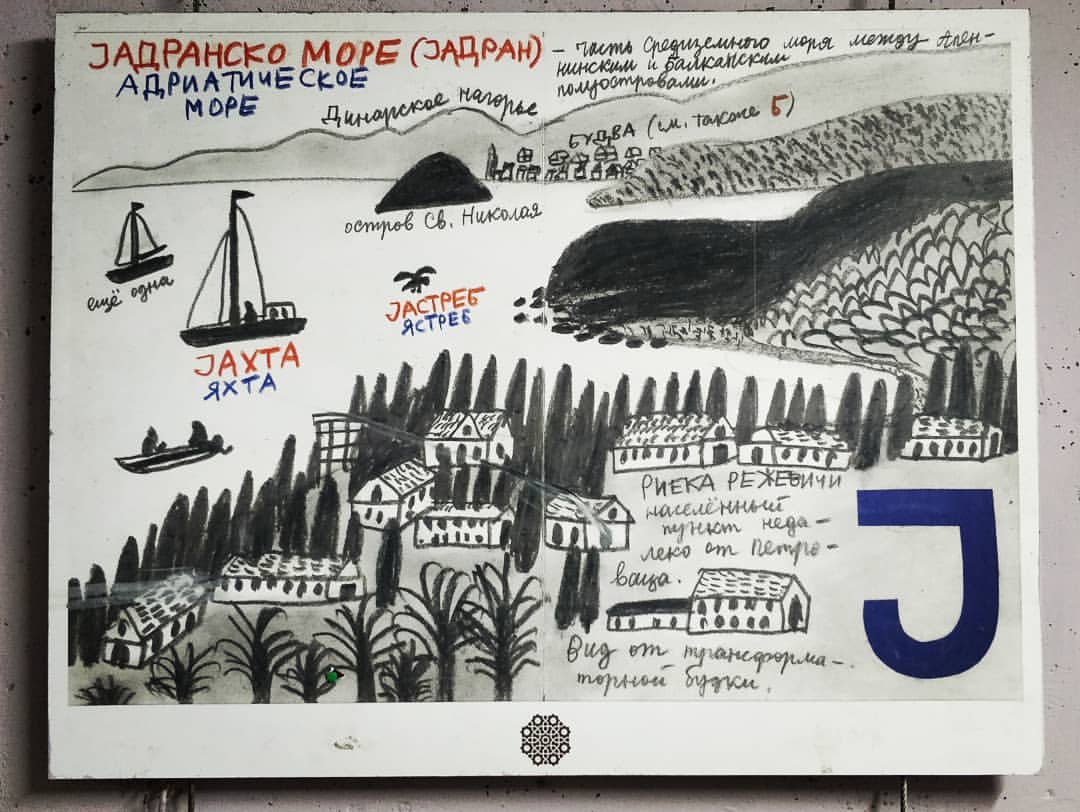 ЈАДРАНСКО МОРЕ (ЈАДРАН)
АДРИАТИЧЕСКОЕ
МОРЕ
– часть Средиземного моря между Апен-
нинским и Балканским
полуостровами.
Динарское нагорье
БУДВА (см. также Б)
остров Св. Николая
ещё одна
ЈАСТРЕБ
ЯСТРЕБ
ЈАХТА
ЯХТА
РИЕКА РЕЖЕВИЧИ
населённый
пункт неда-
леко от Петро-
ваца.
Вид от трансформа-
торной будки.
Ј